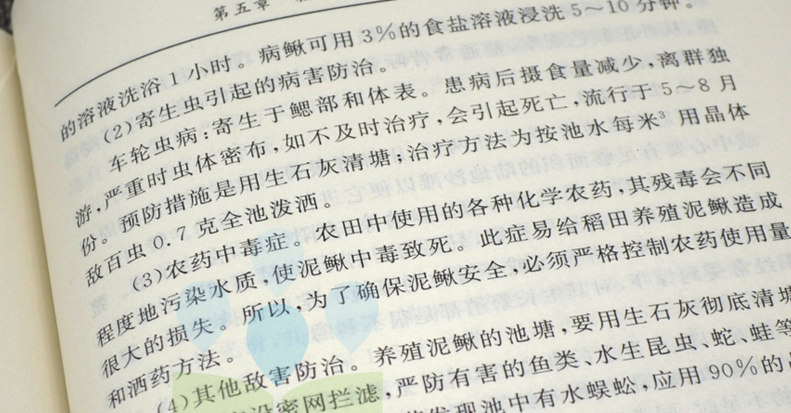 第五章
的溶液洗浴 1 小时。病鳅可用 3%的食盐溶液浸洗 5～10 分钟。
(2)寄生虫引起的病害防治。
车轮虫病:寄生于鳃部和体表。患病后摄食量减少,离群独
游,严重时虫体密布,如不及时治疗,会引起死亡,流行于 5～8 月
份。预防措施是用生石灰清塘;治疗方法为按池水每米³ 用晶体
敌百虫 0.7 克全池泼洒。
(3)农药中毒症。农田中使用的各种化学农药,其残毒会不同
程度地污染水质,使泥鳅中毒致死。此症易给稻田养殖泥鳅造成
很大的损失。所以,为了确保泥鳅安全,必须严格控制农药使用量
和洒药方法。
(4)其他敌害防治。养殖泥鳅的池塘,要用生石灰彻底清塘
设密网拦滤,严防有害的鱼类、水生昆虫、蛇、蛙等
发现池中有水蜈蚣,应用 90%的